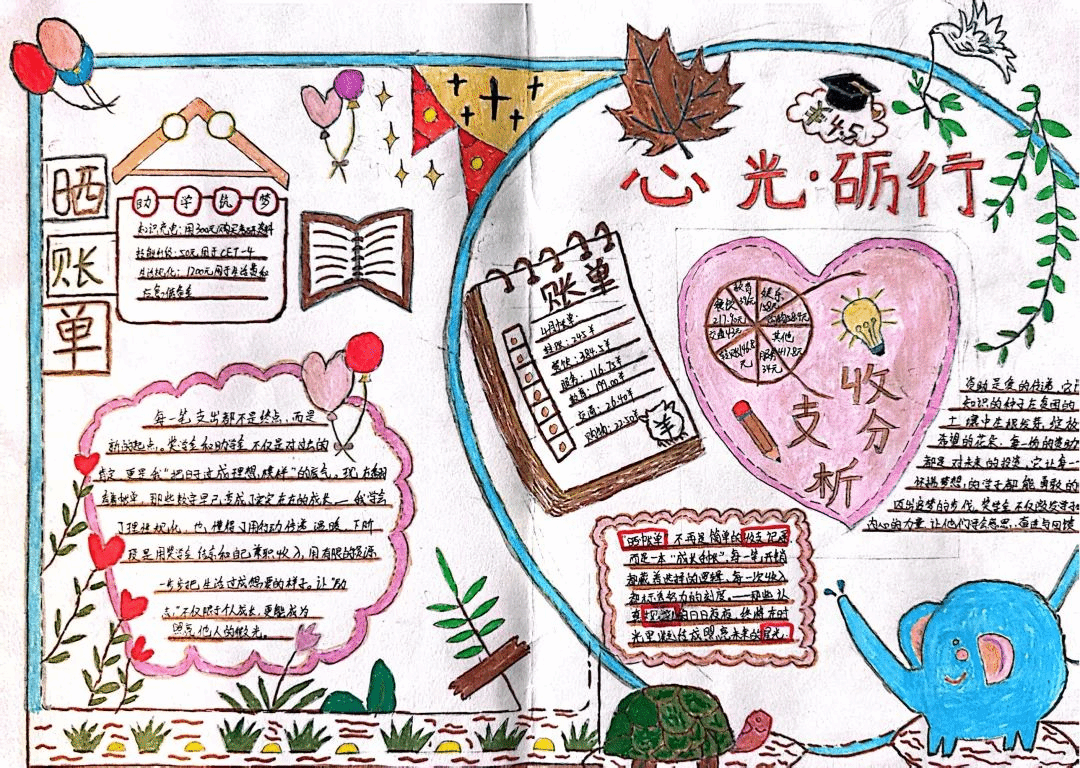 心光·砺行
晒
账
单
助学筑梦
知识充电:用300元购买考研资料
技能升级:50元用于CET-4
生活规化:1200元用于生活费和
每一笔支出都不是终点,而是
新的起点。奖学金和助学金不仅是对过去的
肯定,更是我“把日子过成理想模样”的底气。现在翻
那些数字早已变成了实实在在的成长——我学会
了理性规化,也懂得了用行动传递温暖。下阶
段是用奖学金结余和自己兼职收入,用有限的资源
一步步把生活过成想要的样子。让“励
志”不仅限于个人成长,更能成为
照亮他人的微光。
账单
4月账单:
社保:245¥
餐饮:384.5¥
服务:116.75¥
教育:99.00¥
交通:26.40¥
购物:22.50¥
教育
娱乐
餐饮
217.90元
交通43元
其他
417.8元
服务
34元
收
支
分
析
晒账单 不再是简单的收支记录
而是一本“成长手账”每一笔开销
都藏着选择的逻辑,每一次收入
都标志努力的刻度。——那些认
真记录的日日夜夜,终将在时
光里淬炼成照亮未来的星光。
资助是爱的传递,它
知识的种子在贫困的
土壤中生根发芽,绽放
希望的花朵。每一份的资助
都是对未来的投资,它让每一
怀揣梦想的学子都能勇敢的
迈向追梦的步伐。奖学金不仅激发学
内心的力量,让他们学会感恩,奋进与回馈